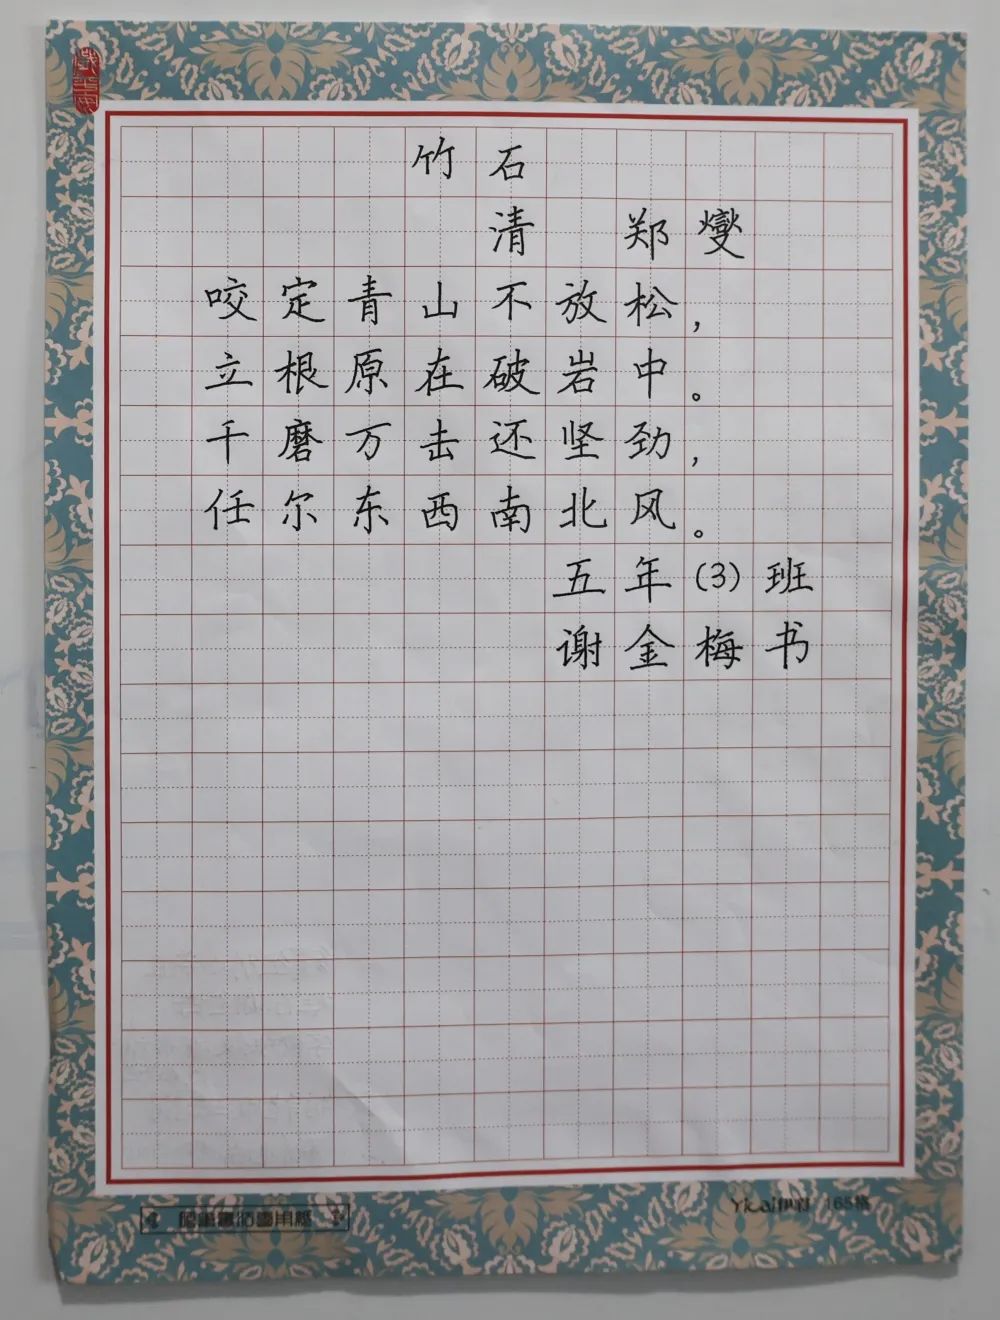 竹石
清 郑燮
咬定青山不放松，
立根原在破岩中。
千磨万击还坚劲，
任尔东西南北风。
五年(3)班
谢金梅书
165格